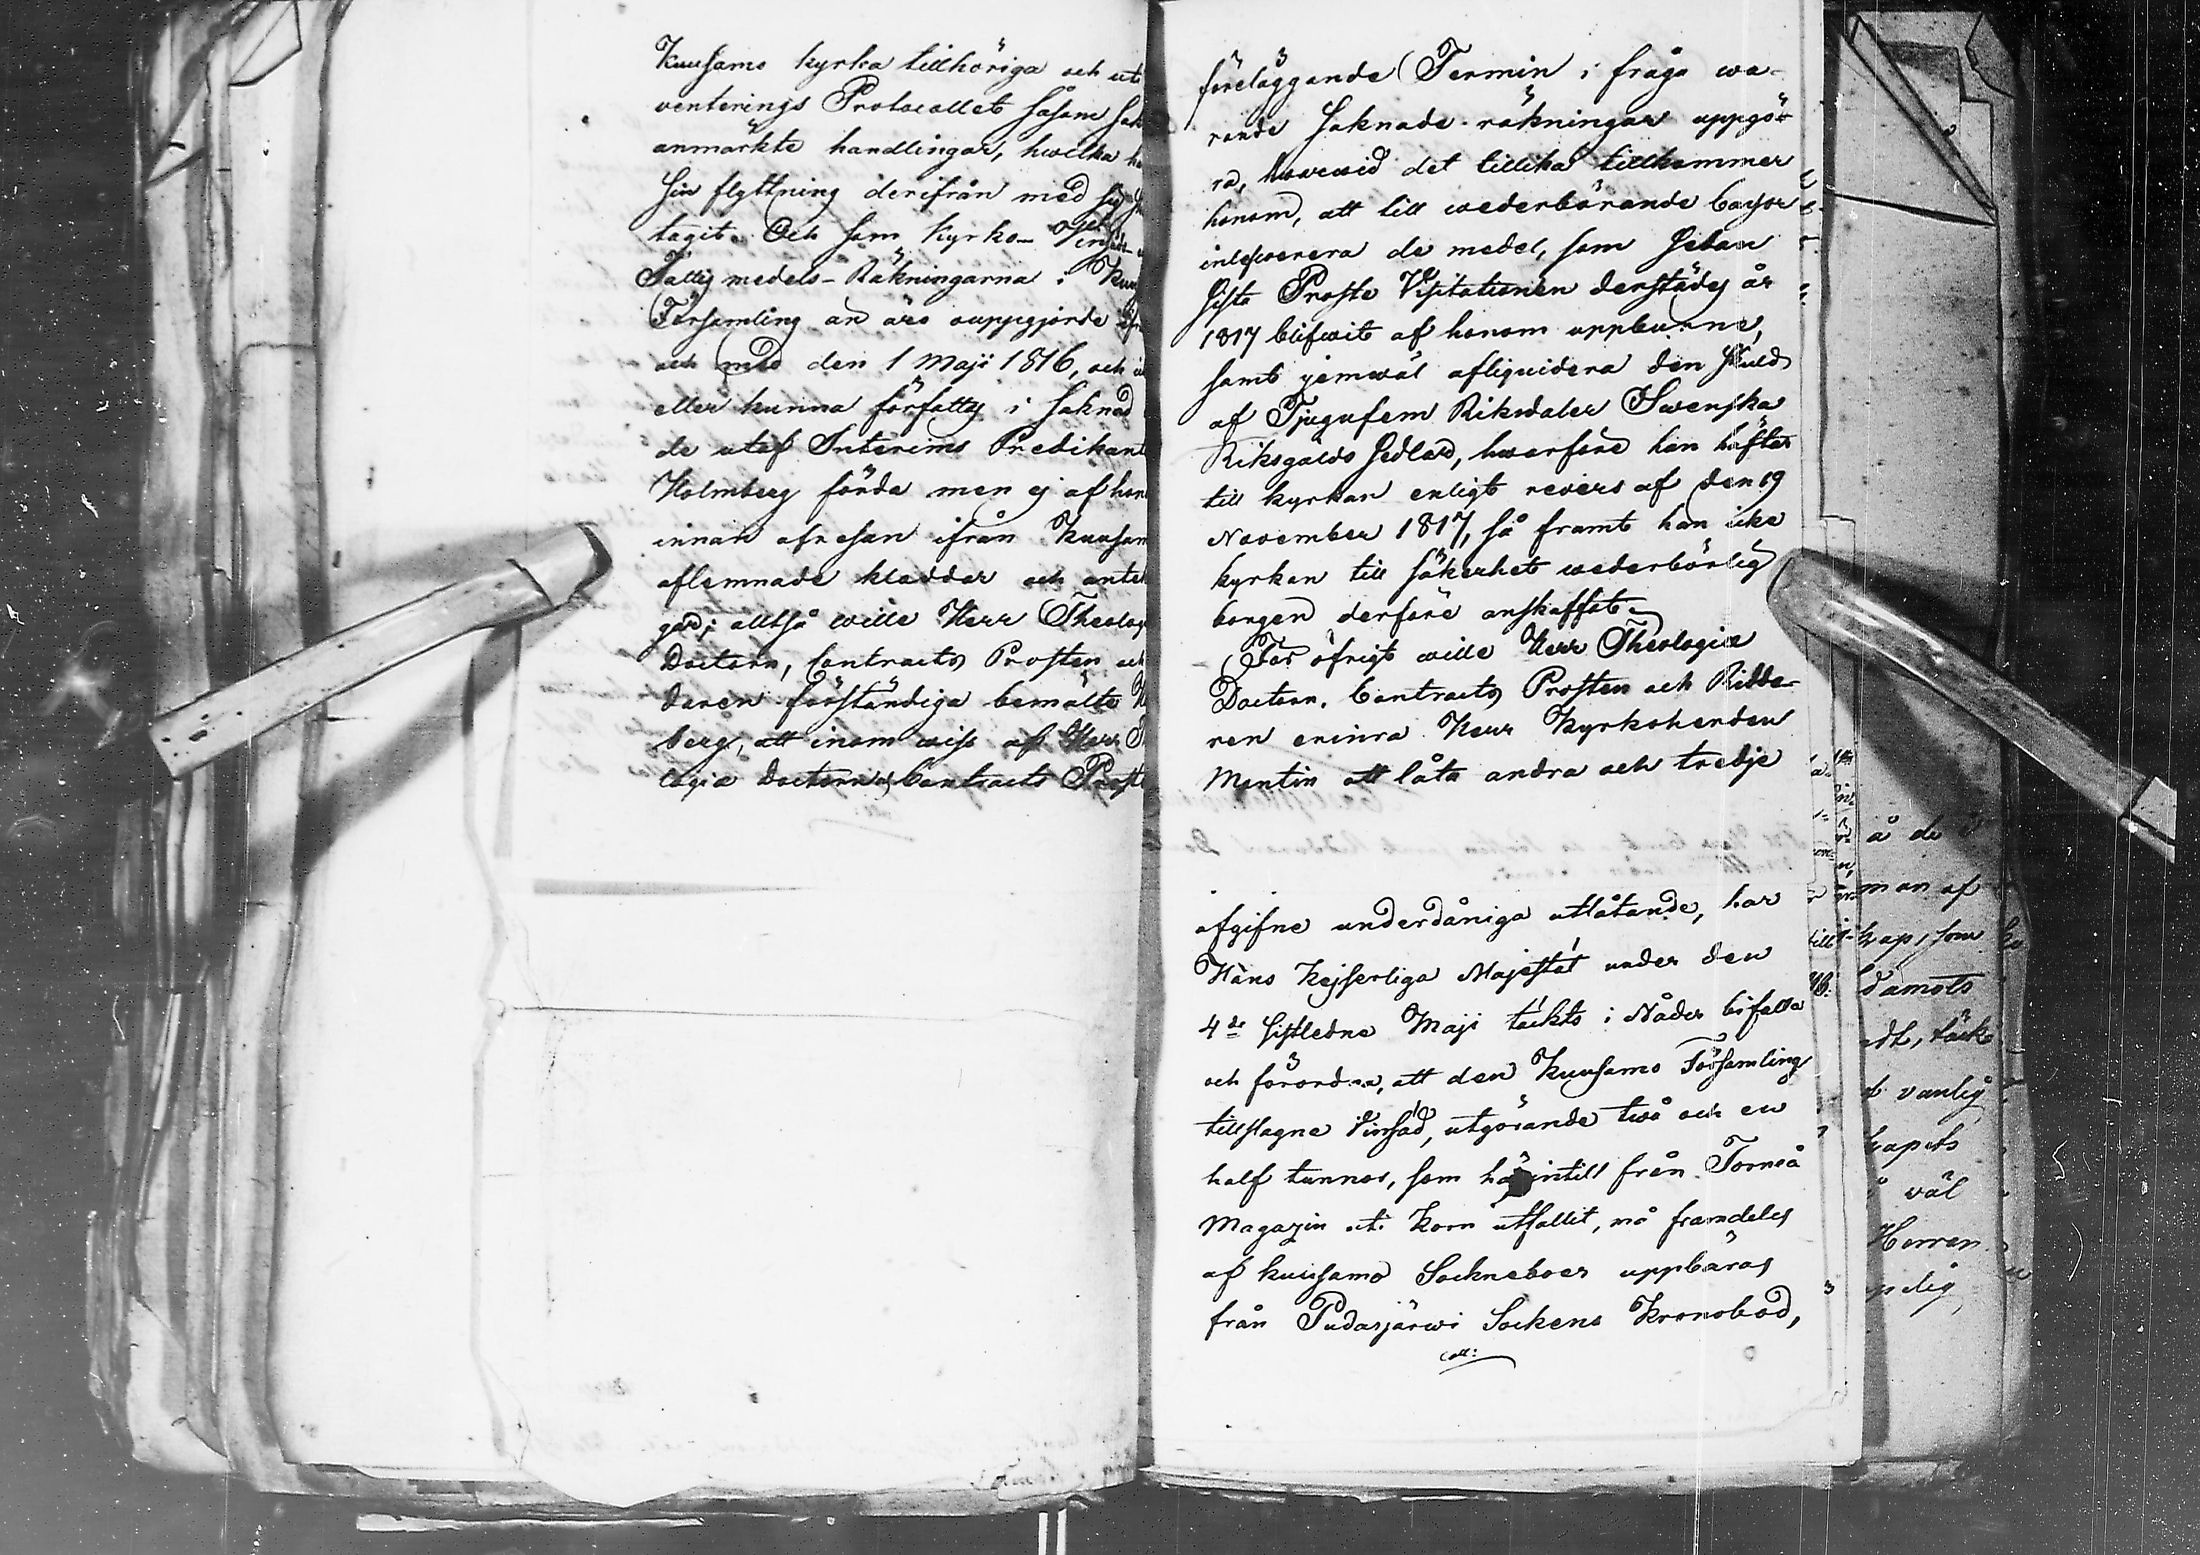 Kuusamo kyrka tillhöriga och uti
venterings Protocollet såsom sak
anmärkte handlingar, hwilka ha
sin flyttning derifrån med sig
tagit. Och som Kyrko- Vinsäd-
Fattig medels- Räkningarna i Kuu
Församling än äro ouppgjorde ifrå
och med den 1 Maji 1816, och
eller kunna författas i saknad
de utaf Interims Predikant
Holmberg förda men ej af hon
innan afresan ifrån Kuusam
aflemnade kladdar och anteck
gar; alltså wille Herr Theolog
Doctorn, Contracts Prosten och
daren förständiga bemälte H
berg, att inom wiss af Herr T
logiæ Doctorn, Contracts Prost
föreläggande Termin i fråga wa-
rande saknade räkningar uppgö-
ra, hwarwid det tillika tillkommer
honom, att till wederbörande Cassor
inleverera de medel, som sedan
sista Proste Visitationen derstädes år
1817 blifwit af honom uppburne,
samt jemwäl afliquidera den skuld
af Tjugufem Riksdaler Swenska
Riksgälds Sedlar, hwarföre han häftar
till kyrkan enligt revers af den 19
November 1817, så framt han icke
kyrkan till säkerhet wederbörlig
borgen derföre anskaffat.
För öfrigt wille Herr Theologiæ
Doctorn, Contracts Prosten och Ridda-
ren erinra Herr Kyrkoherden
Montin att låta andra och tredje
afgifne underdåniga utlåtande, har
Hans Kejserliga Majestät under den
4de sistledne Maji täckts i Nåder bifalla
och förordna, att den Kuusamo Församling
tillslagne Vinsäd, utgörande twå och en
half tunnor, som härintill från Torneå
Magazin uti Korn utfallit, må framdeles
af Kuusamo Sockneboer uppbäras
från Pudasjärwi Sockens Kronobod,
Coll:
å de
man af
kap, som
damots
edt, täck
t vanlig
kapets
väl
Herren
pelig